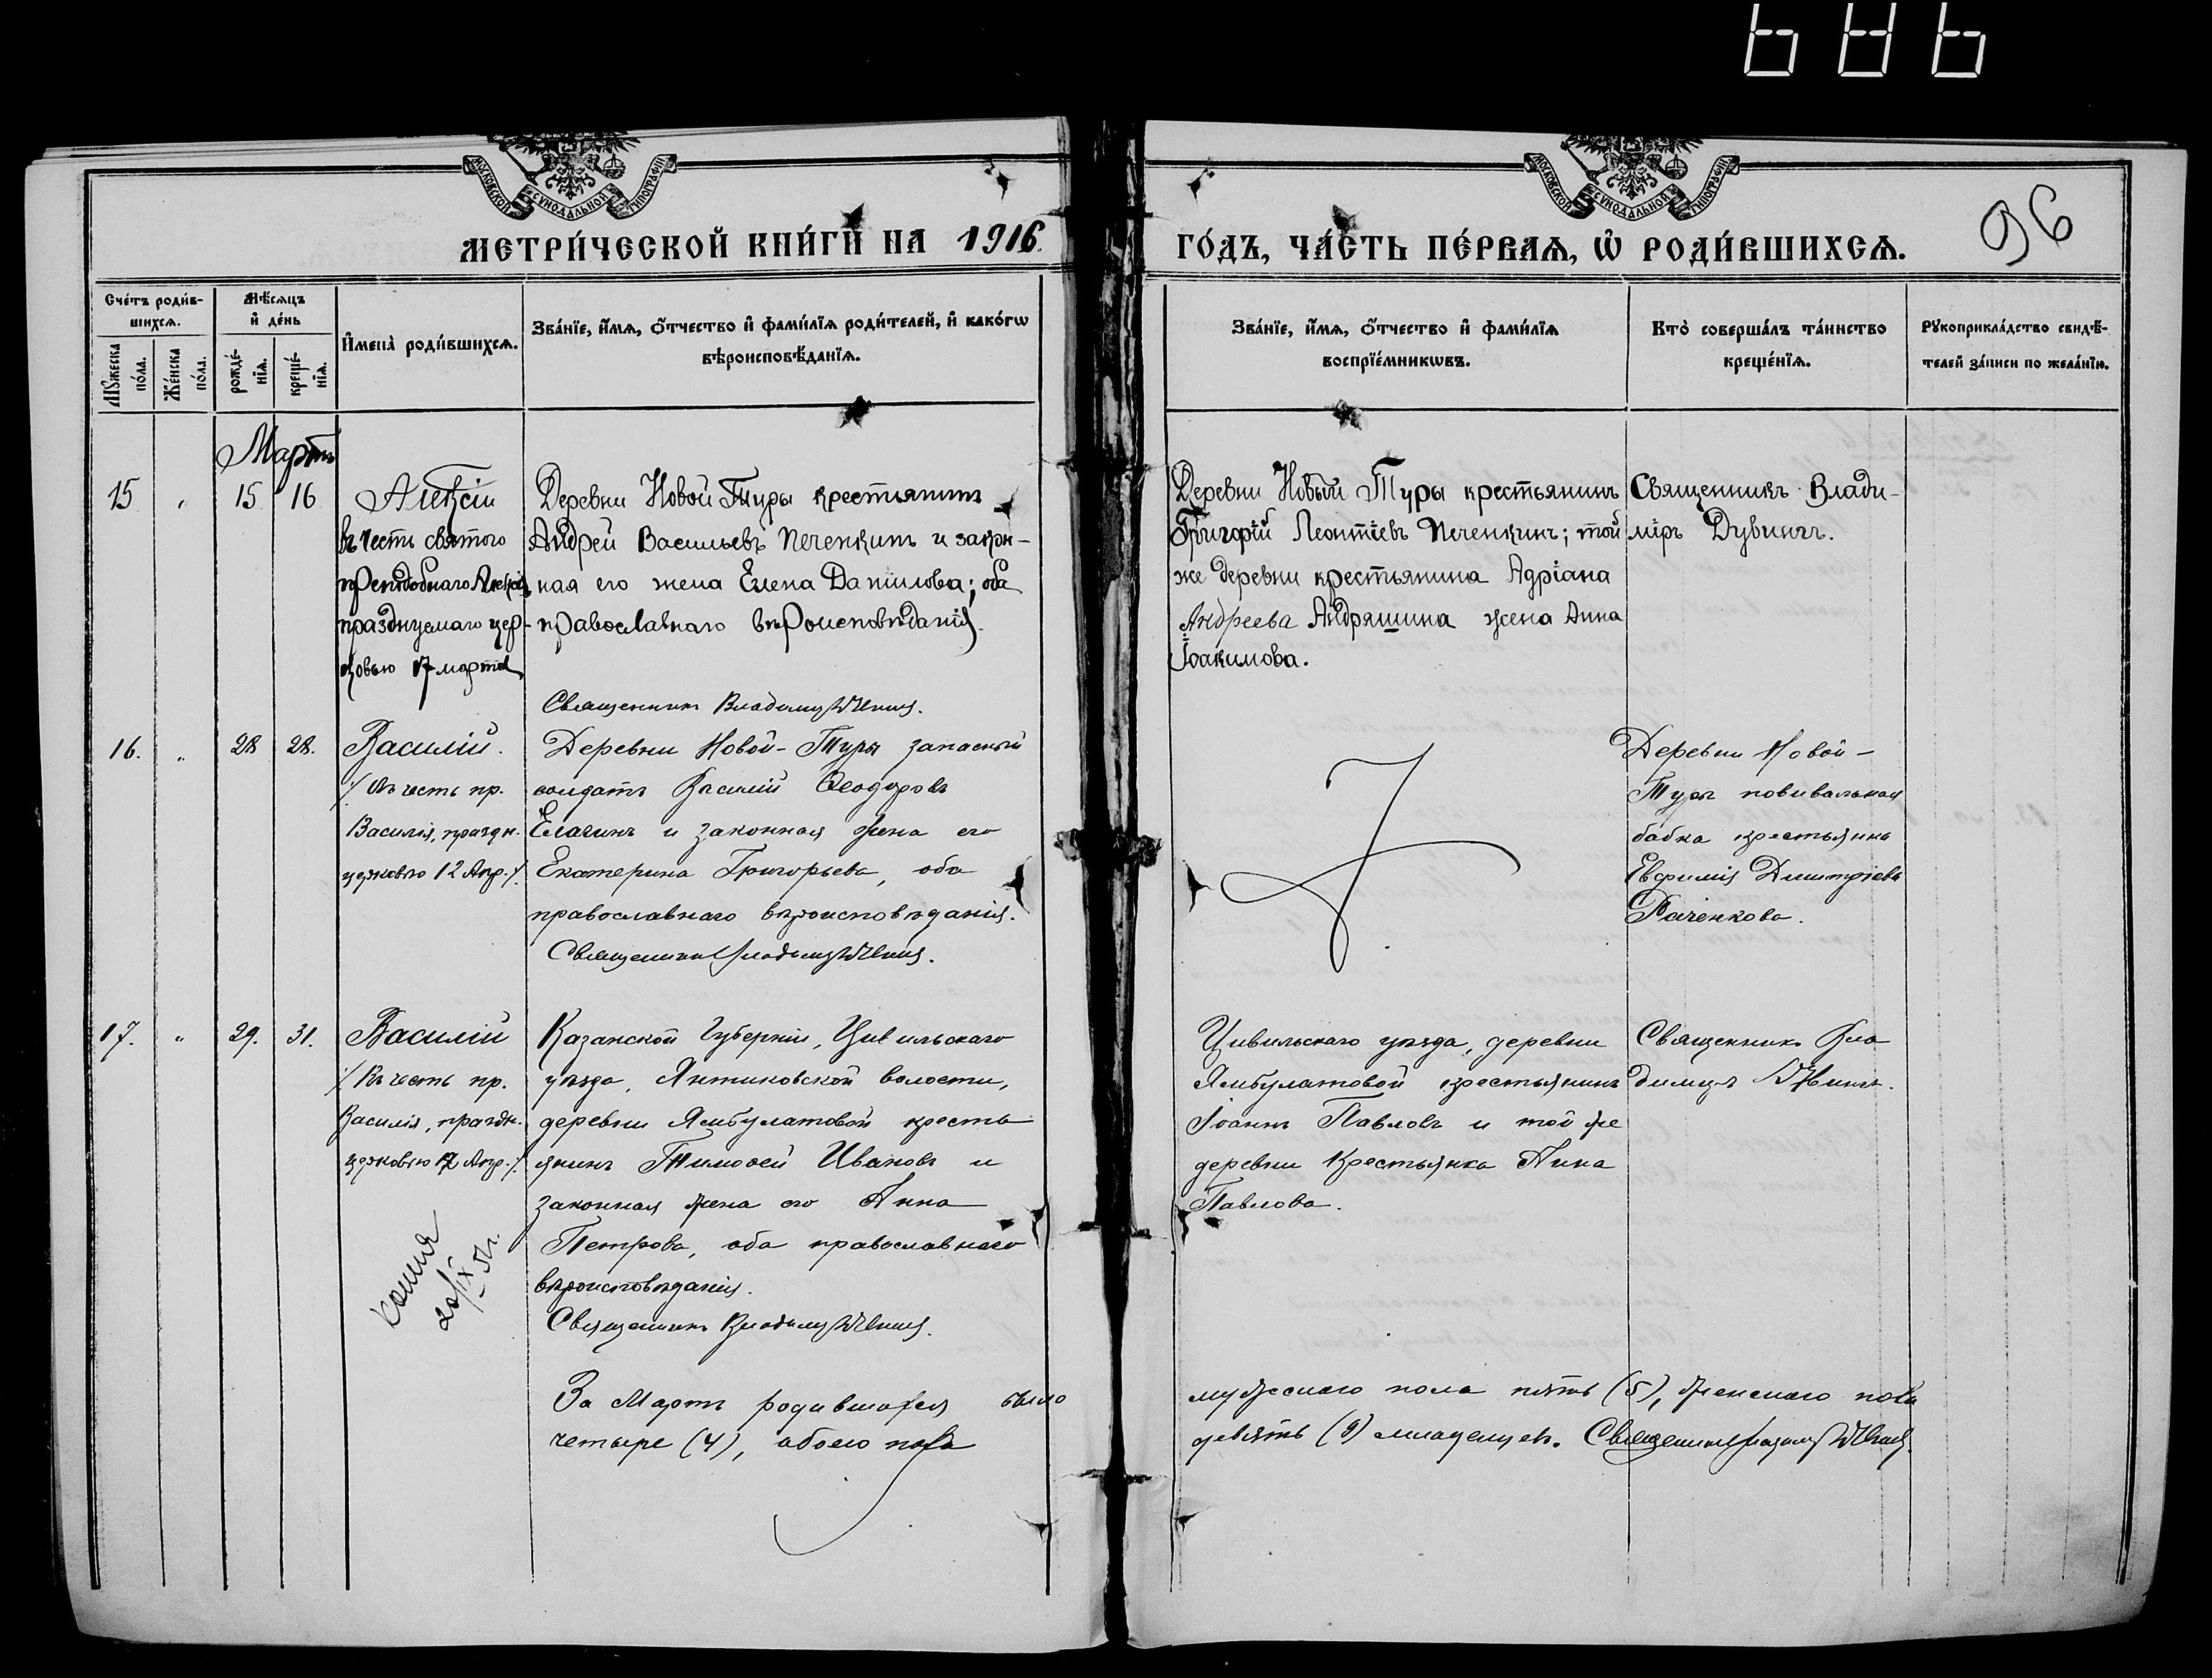 МОСКОВСКОЙ СѴНОДАЛЬНОЙ ТИПОГРАФІИ
МОСКОВСКОЙ СѴНОДАЛЬНОЙ ТИПОГРАФІИ
96
МЕТРИ́ЧЕСКОЙ КНИ́ГИ НА 1916
ГО́ДЪ, ЧА́СТЬ ПЕ́РВАѦ, Ѡ҆ РОДИ́ВШИХСѦ.
Сче́тъ роди́в-
шихсѧ.
Мꙋ́жеска
по́ла.
Же́нска
по́ла.
Мѣ́сѧцъ
и҆ де́нь
рожде́-
нїѧ.
креще́-
нїѧ.
И҆мена̀ роди́вшихсѧ.
Зва́нїе, и҆́мѧ, ѻ҆́тчество и҆ фами́лїѧ роди́телей, и҆ како́гѡ
вѣроисповѣ́данїѧ.
Зва́нїе, и҆́мѧ, ѻ҆́тчество и҆ фами́лїѧ
воспрїе́мникѡвъ.
Кто̀ соверша́лъ та́инство
креще́нїѧ.
Рꙋкоприкла́дство свидѣ́-
телей за́писи по жела́нїю.
Мартъ
15 " 15 16
Алексій
въ честь святого
преподобнаго Алексія,
празднуемаго цер-
ковью 17 марта
Деревни Новой Туры крестьянинъ
Андрей Васильевъ Печенкинъ и закон-
ная его жена Елена Данилова; оба
православнаго вѣроисповѣданія.
Священникъ Владиміръ
Деревни Новой Туры крестьянинъ
Григорій Леонтіевъ Печенкинъ; той
же деревни крестьянина Адріана
Андреева Андряшина жена Анна
Іоакимова.
Священникъ Влади-
міръ Дувингъ.
16. " 28 28.
Василій.
/ Въ честь пр.
Василія, праздн.
церковью 12 Апр. /.
Деревни Новой-Туры запасный
солдатъ Василій Ѳеодоровъ
Елагинъ и законная жена его
Екатерина Григорьева, оба
православнаго вѣроисповѣданія.
Священникъ Владиміръ
Деревни Новой-
Туры повивальная
бабка крестьянка
Евфимія Димитріева
Раченкова.
17. " 29. 31.
Василій
/ Въ честь пр.
Василія, праздн.
церковью 12 Апр. /.
Казанской Губерніи, Цивильскаго
уѣзда, Янтиковской волости,
деревни Ямбулатовой кресть
янинъ Тимоѳей Ивановъ и
законная жена его Анна
Петрова, оба православнаго
вѣроисповѣданія.
Священникъ Владиміръ
копия
20/IX 51г.
Цивильскаго уѣзда, деревни
Ямбулатовой крестьянинъ
Іоаннъ Павловъ и той же
деревни крестьянка Анна
Павлова.
Священникъ Вла
диміръ
За Мартъ родившихся было
мужескаго пола пять (5), женскаго пола
четыре (4), обоего пола
девять (9) младенцевъ. Священникъ Владиміръ